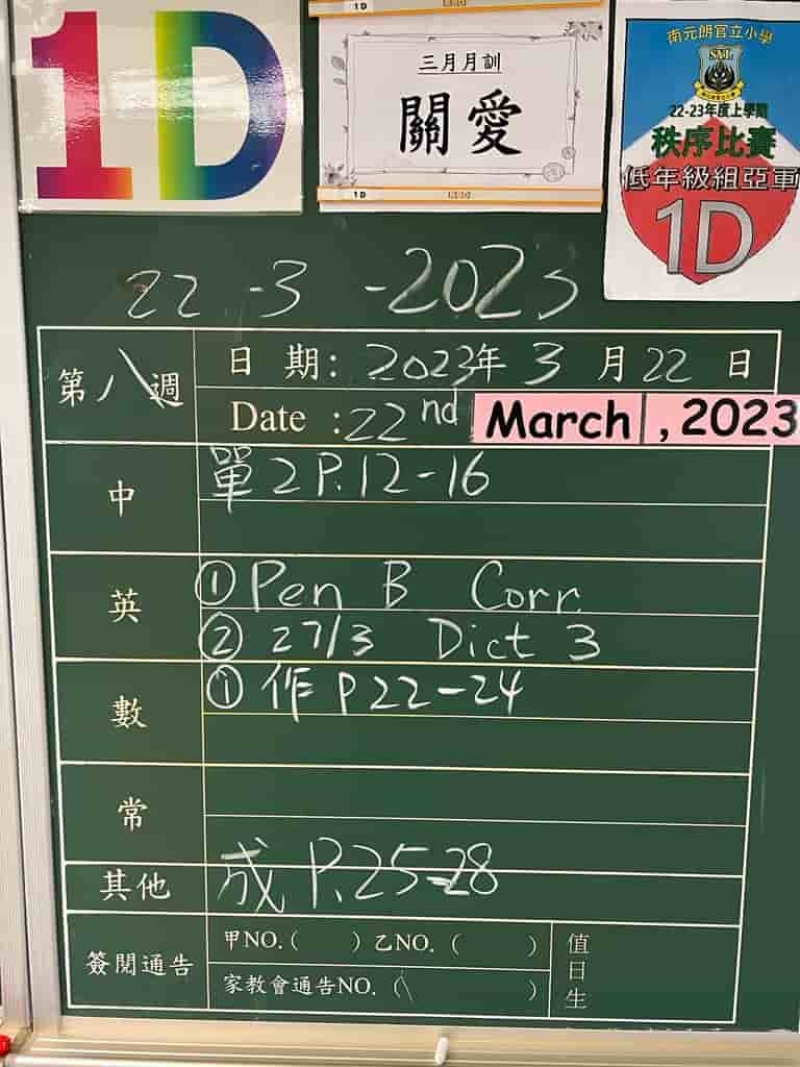 1D
1D
三月月訓
關愛
1D
南元朗官立小學
22-23年度上學期
秩序比賽
低年級組亞軍
1D
22-3-2023
第八週
日期: 2023年3月22日
Date :22nd March, 2023
中 單2 P.12-16
英 ① Pen B Corr.
② 27/3 Dict 3
數 ① 作 P22-24
常
其他 成 P.25-28
簽閱通告 甲NO.( ) 乙NO. ( )
家教會通告NO. (\ )
值日生